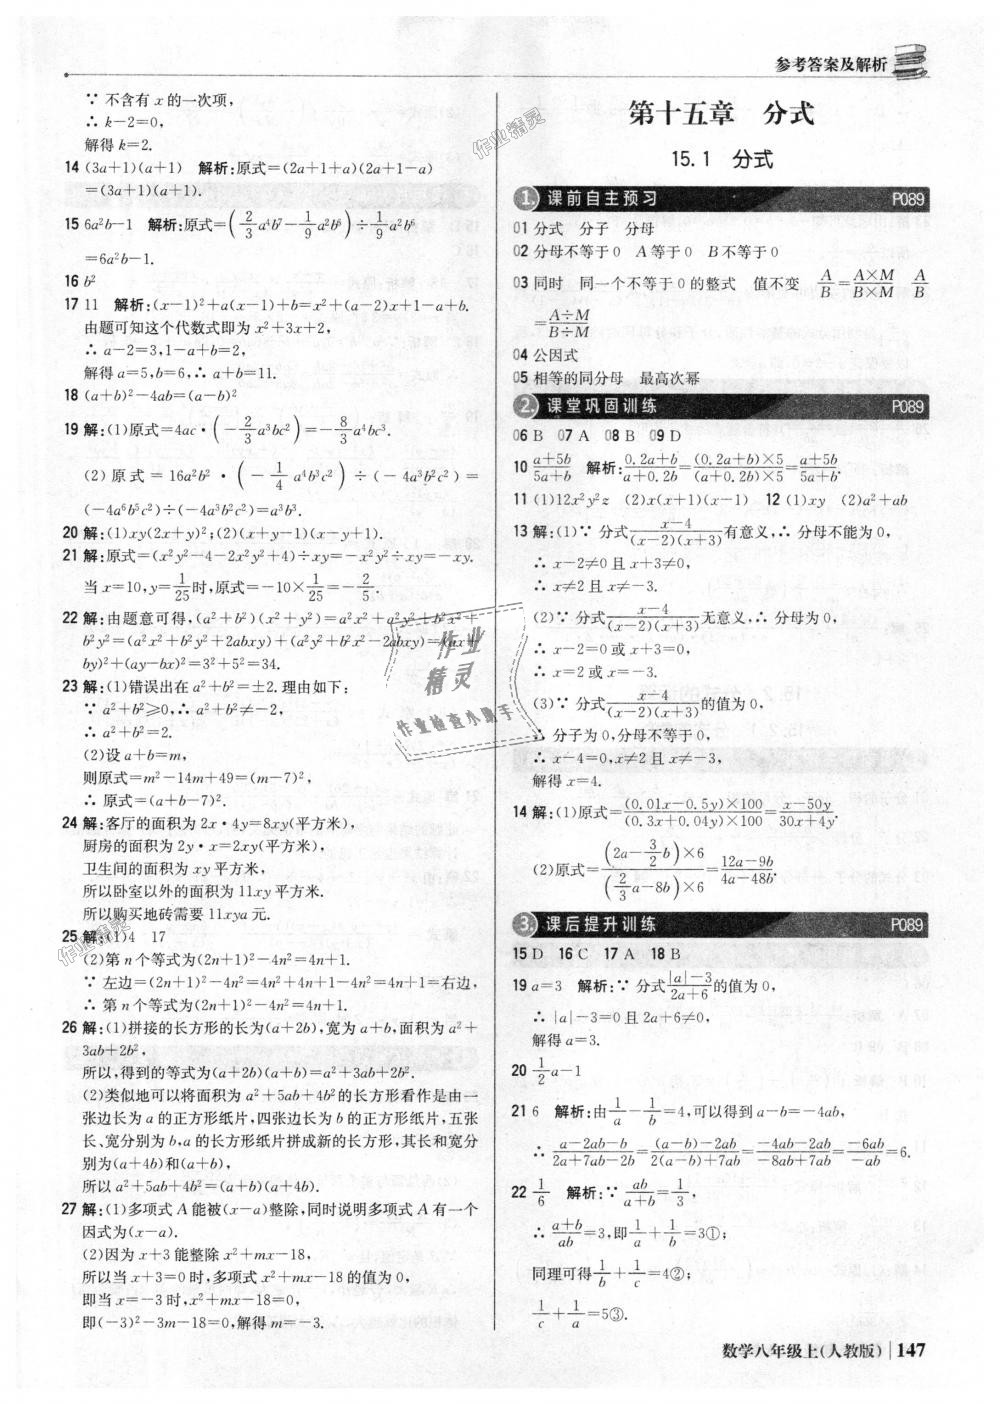 参考答案及解析
∵ 不含有 x 的一次项,
∴ k−2=0,
解得 k=2.
14 (3a+1)(a+1) 解析:原式=(2a+1+a)(2a+1−a)
=(3a+1)(a+1).
15 6a²b−1 解析:原式=(2/3 a⁴b⁷−1/9 a²b⁶)÷1/9 a²b⁶
=6a²b−1.
16 b²
17 11 解析:(x−1)²+a(x−1)+b=x²+(a−2)x+1−a+b.
由题可知这个代数式即为 x²+3x+2,
∴ a−2=3,1−a+b=2,
解得 a=5,b=6,∴ a+b=11.
18 (a+b)²−4ab=(a−b)²
19 解:(1)原式=4ac·(−2/3 a³bc²)=−8/3 a⁴bc³.
(2)原式=16a²b²·(−1/4 a⁴b³c²)÷(−4a³b²c²)=
(−4a⁶b⁵c²)÷(−4a³b²c²)=a³b³.
20 解:(1)xy(2x+y)²;(2)(x+y−1)(x−y+1).
21 解:原式=(x²y²−4−2x²y²+4)÷xy=−x²y²÷xy=−xy.
当 x=10,y=1/25时,原式=−10×1/25=−2/5.
22 解:由题意可得,(a²+b²)(x²+y²)=a²x²+a²y²+b²x²+
b²y²=(a²x²+b²y²+2abxy)+(a²y²+b²x²−2abxy)=(ax+
by)²+(ay−bx)²=3²+5²=34.
23 解:(1)错误出在 a²+b²=±2.理由如下:
∵ a²+b²≥0,∴ a²+b²≠−2,
∴ a²+b²=2.
(2)设 a+b=m,
则原式=m²−14m+49=(m−7)²,
∴ 原式=(a+b−7)².
24 解:客厅的面积为 2x·4y=8xy(平方米),
厨房的面积为 2y·x=2xy(平方米),
卫生间的面积为 xy 平方米,
所以卧室以外的面积为 11xy 平方米.
所以购买地砖需要 11xya 元.
25 解:(1)4 17
(2)第 n 个等式为(2n+1)²−4n²=4n+1.
∵ 左边=(2n+1)²−4n²=4n²+4n+1−4n²=4n+1=右边,
∴ 第 n 个等式为(2n+1)²−4n²=4n+1.
26 解:(1)拼接的长方形的长为(a+2b),宽为 a+b,面积为 a²+
3ab+2b²,
所以,得到的等式为(a+2b)(a+b)=a²+3ab+2b².
(2)类似地可以将面积为 a²+5ab+4b²的长方形看作是由一
张边长为 a 的正方形纸片,四张边长为 b 的正方形纸片,五张
长、宽分别为 b,a 的长方形纸片拼成新的长方形,其长和宽分
别为(a+4b)和(a+b),
所以 a²+5ab+4b²=(a+b)(a+4b).
27 解:(1)多项式 A 能被(x−a)整除,同时说明多项式 A 有一个
因式为(x−a).
(2)因为 x+3 能整除 x²+mx−18,
所以当 x+3=0 时,多项式 x²+mx−18 的值为 0,
即当 x=−3 时,x²+mx−18=0,
即(−3)²−3m−18=0,解得 m=−3.
第十五章 分式
15.1 分式
1. 课前自主预习 P089
01 分式 分子 分母
02 分母不等于 0 A 等于 0 B 不等于 0
03 同时 同一个不等于 0 的整式 值不变 A/B=A×M/B×M A/B
=A÷M/B÷M
04 公因式
05 相等的同分母 最高次幂
2. 课堂巩固训练 P089
06 B 07 A 08 B 09 D
10 a+5b/5a+b 解析:0.2a+b/a+0.2b=(0.2a+b)×5/(a+0.2b)×5=a+5b/5a+b.
11 (1)12x²y²z (2)x(x+1)(x−1) 12 (1)xy (2)a²+ab
13 解:(1)∵ 分式x−4/(x−2)(x+3)有意义,∴ 分母不能为 0,
∴ x−2≠0 且 x+3≠0,
∴ x≠2 且 x≠−3.
(2)∵ 分式x−4/(x−2)(x+3)无意义,∴ 分母为 0,
∴ x−2=0 或 x+3=0,
∴ x=2 或 x=−3.
(3)∵ 分式x−4/(x−2)(x+3)的值为 0,
∴ 分子为 0,分母不等于 0,
∴ x−4=0,x≠2 且 x≠−3,
解得 x=4.
14 解:(1)原式=(0.01x−0.5y)×100/(0.3x+0.04y)×100=x−50y/30x+4y.
(2)原式=(2a−3/2 b)×6/(2/3 a−8b)×6=12a−9b/4a−48b.
3. 课后提升训练 P089
15 D 16 C 17 A 18 B
19 a=3 解析:∵ 分式|a|−3/2a+6的值为 0,
∴ |a|−3=0 且 2a+6≠0,
解得 a=3.
20 1/2 a−1
21 6 解析:由1/a−1/b=4,可以得到 a−b=−4ab,
∴ a−2ab−b/2a+7ab−2b=(a−b)−2ab/2(a−b)+7ab=−4ab−2ab/−8ab+7ab=−6ab/−ab=6.
22 1/6 解析:∵ ab/a+b=1/3,
∴ a+b/ab=3,即1/a+1/b=3①;
同理可得1/b+1/c=4②;
1/c+1/a=5③.
数学八年级上(人教版) 147
作业精灵
作业精灵
作业
精灵
作业检查小助手